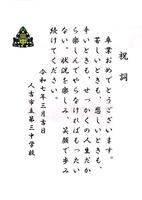 祝詞
卒業おめでとうございます。
苦しいときも、悲しいときも、
辛いときも、せっかくの人生だか
ら楽しんでやらなくてはもったい
ない。状況を楽しみ、笑顔で歩み
続けてください。
令和七年三月吉日
人吉市立第三中学校